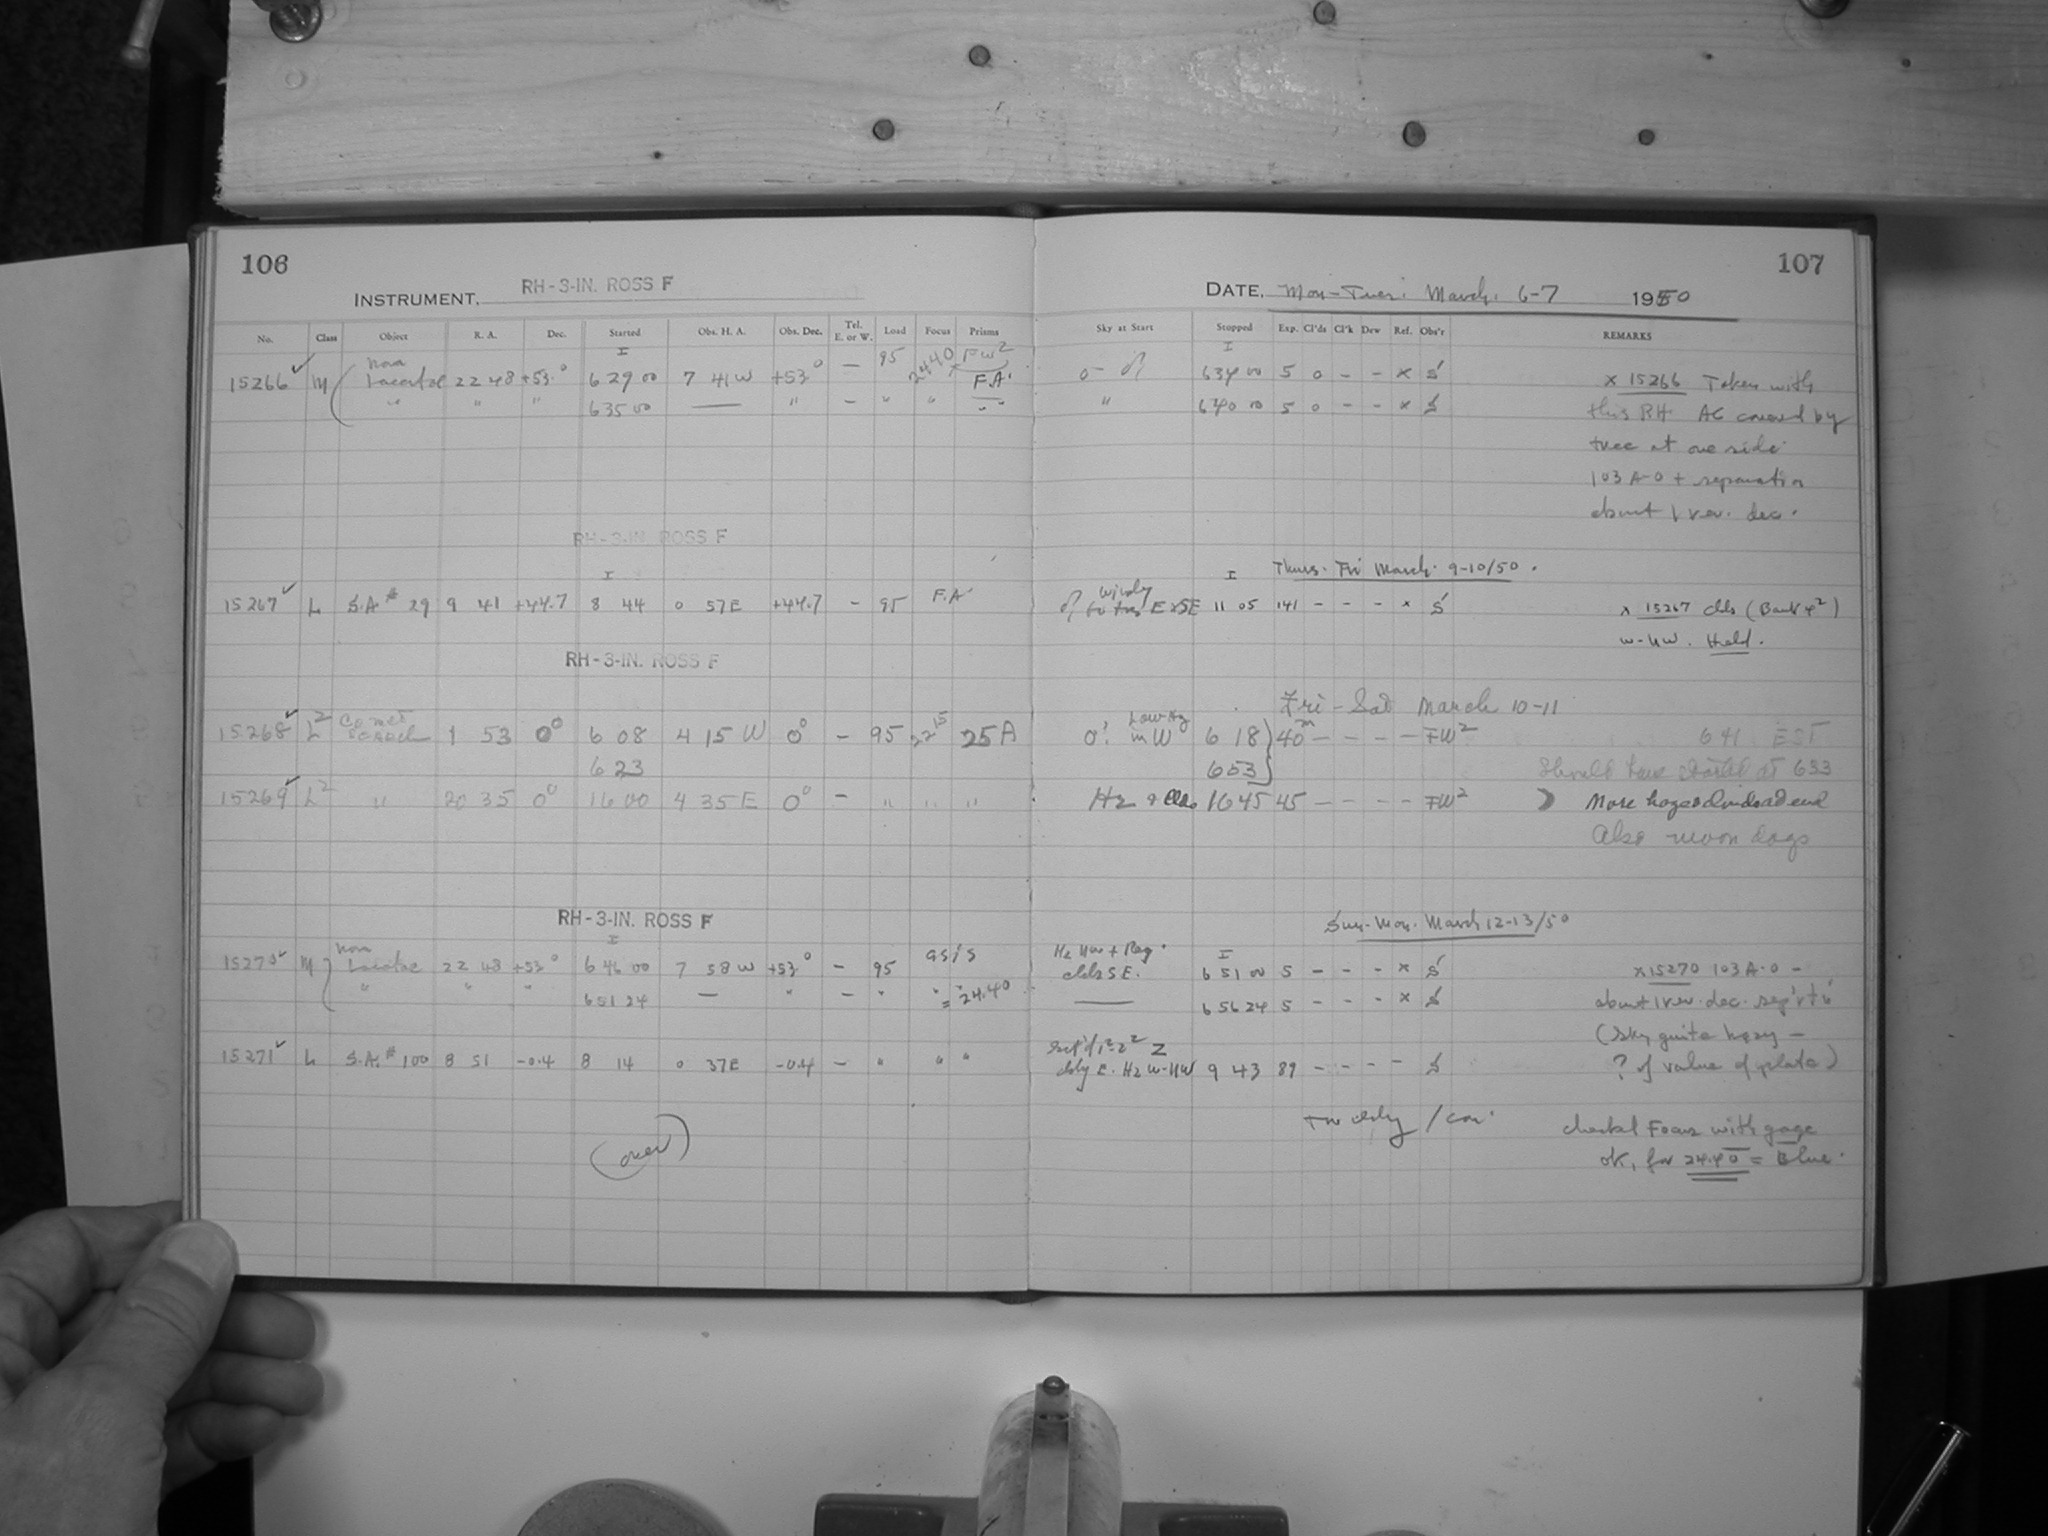 106
INSTRUMENT, RH-3-IN. ROSS F
No. Class Object R. A. Dec. Started Obs. H. A. Obs. Dec. Tel. E. or W. Load Focus Prisms
I
15266 M Nova Lacertae 22 48 +53.° 6 29 00 7 41 W +53° — 95 2440 FW2 F.A.
" " " 6 35 00 — " — " " " "
RH-3-IN. ROSS F
I
15267 L S.A # 29 9 41 +44.7 8 44 0 57 E +44.7 - 95 F.A
RH-3-IN. ROSS F
15268 L2 Comet search 1 53 0° 6 08 4 15 W 0° - 95 25A
6 23
15269 L2 " 20 35 0° 16 00 4 35 E 0° - " " "
RH-3-IN. ROSS F
I
15270 M Nova Lacertae 22 48 +53° 6 46 00 7 58 W +53° - 95 as is
" " " 6 51 24 — " - " " = 24.40
15271 L S.A. # 100 8 51 -0.4 8 14 0 37E -0.4 - " " "
(over)
107
DATE, Mon-Tues. March. 6-7 1950
Sky at Start Stopped Exp. Cl'ds Cl'k Dew Ref. Obs'r REMARKS
I
6 34 00 5 0 - - x S
x 15266 Taken with
" 6 40 00 5 0 - - x S
this RH AC covered by
tree at one side
103 A-0 + separation
about 1 rev. dec.
Thurs. Fri March. 9-10/50.
I
windy E & SE 11 05 141 - - - x S
x 15267 clds
W-NW. Held.
Fri - Sat March 10-11
0! Low Hz in W 6 18 } 40m - - - - FW2
641 EST
6 53 }
Should have started at 633
Hz & clds 16 45 45 - - - - FW2
More haze & clouds at end
Also moon dogs
Sun-Mon. March 12-13/50
I
Hz NW + Reg.
clds SE. 6 51 00 5 - - - x S
x15270 103 A-0 -
— 6 56 24 5 - - - x S
about 1 rev. dec. sep'r't'n
(sky quite hazy -
cldy E. Hz W-NW 9 43 89 - - - - S
? of value of plate)
cldy / con.
checked Focus with gage
ok, for 24.40 = Blue.